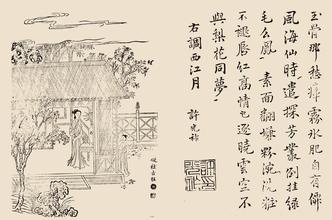 玉骨那愁瘴霧冰肌自有仙
風海仙時遣探芳叢倒挂綠
毛么鳳 素面翻嫌粉涴洗妝
不褪唇紅高情已逐曉雲空不
與梨花同夢
右調西江月
許光祚